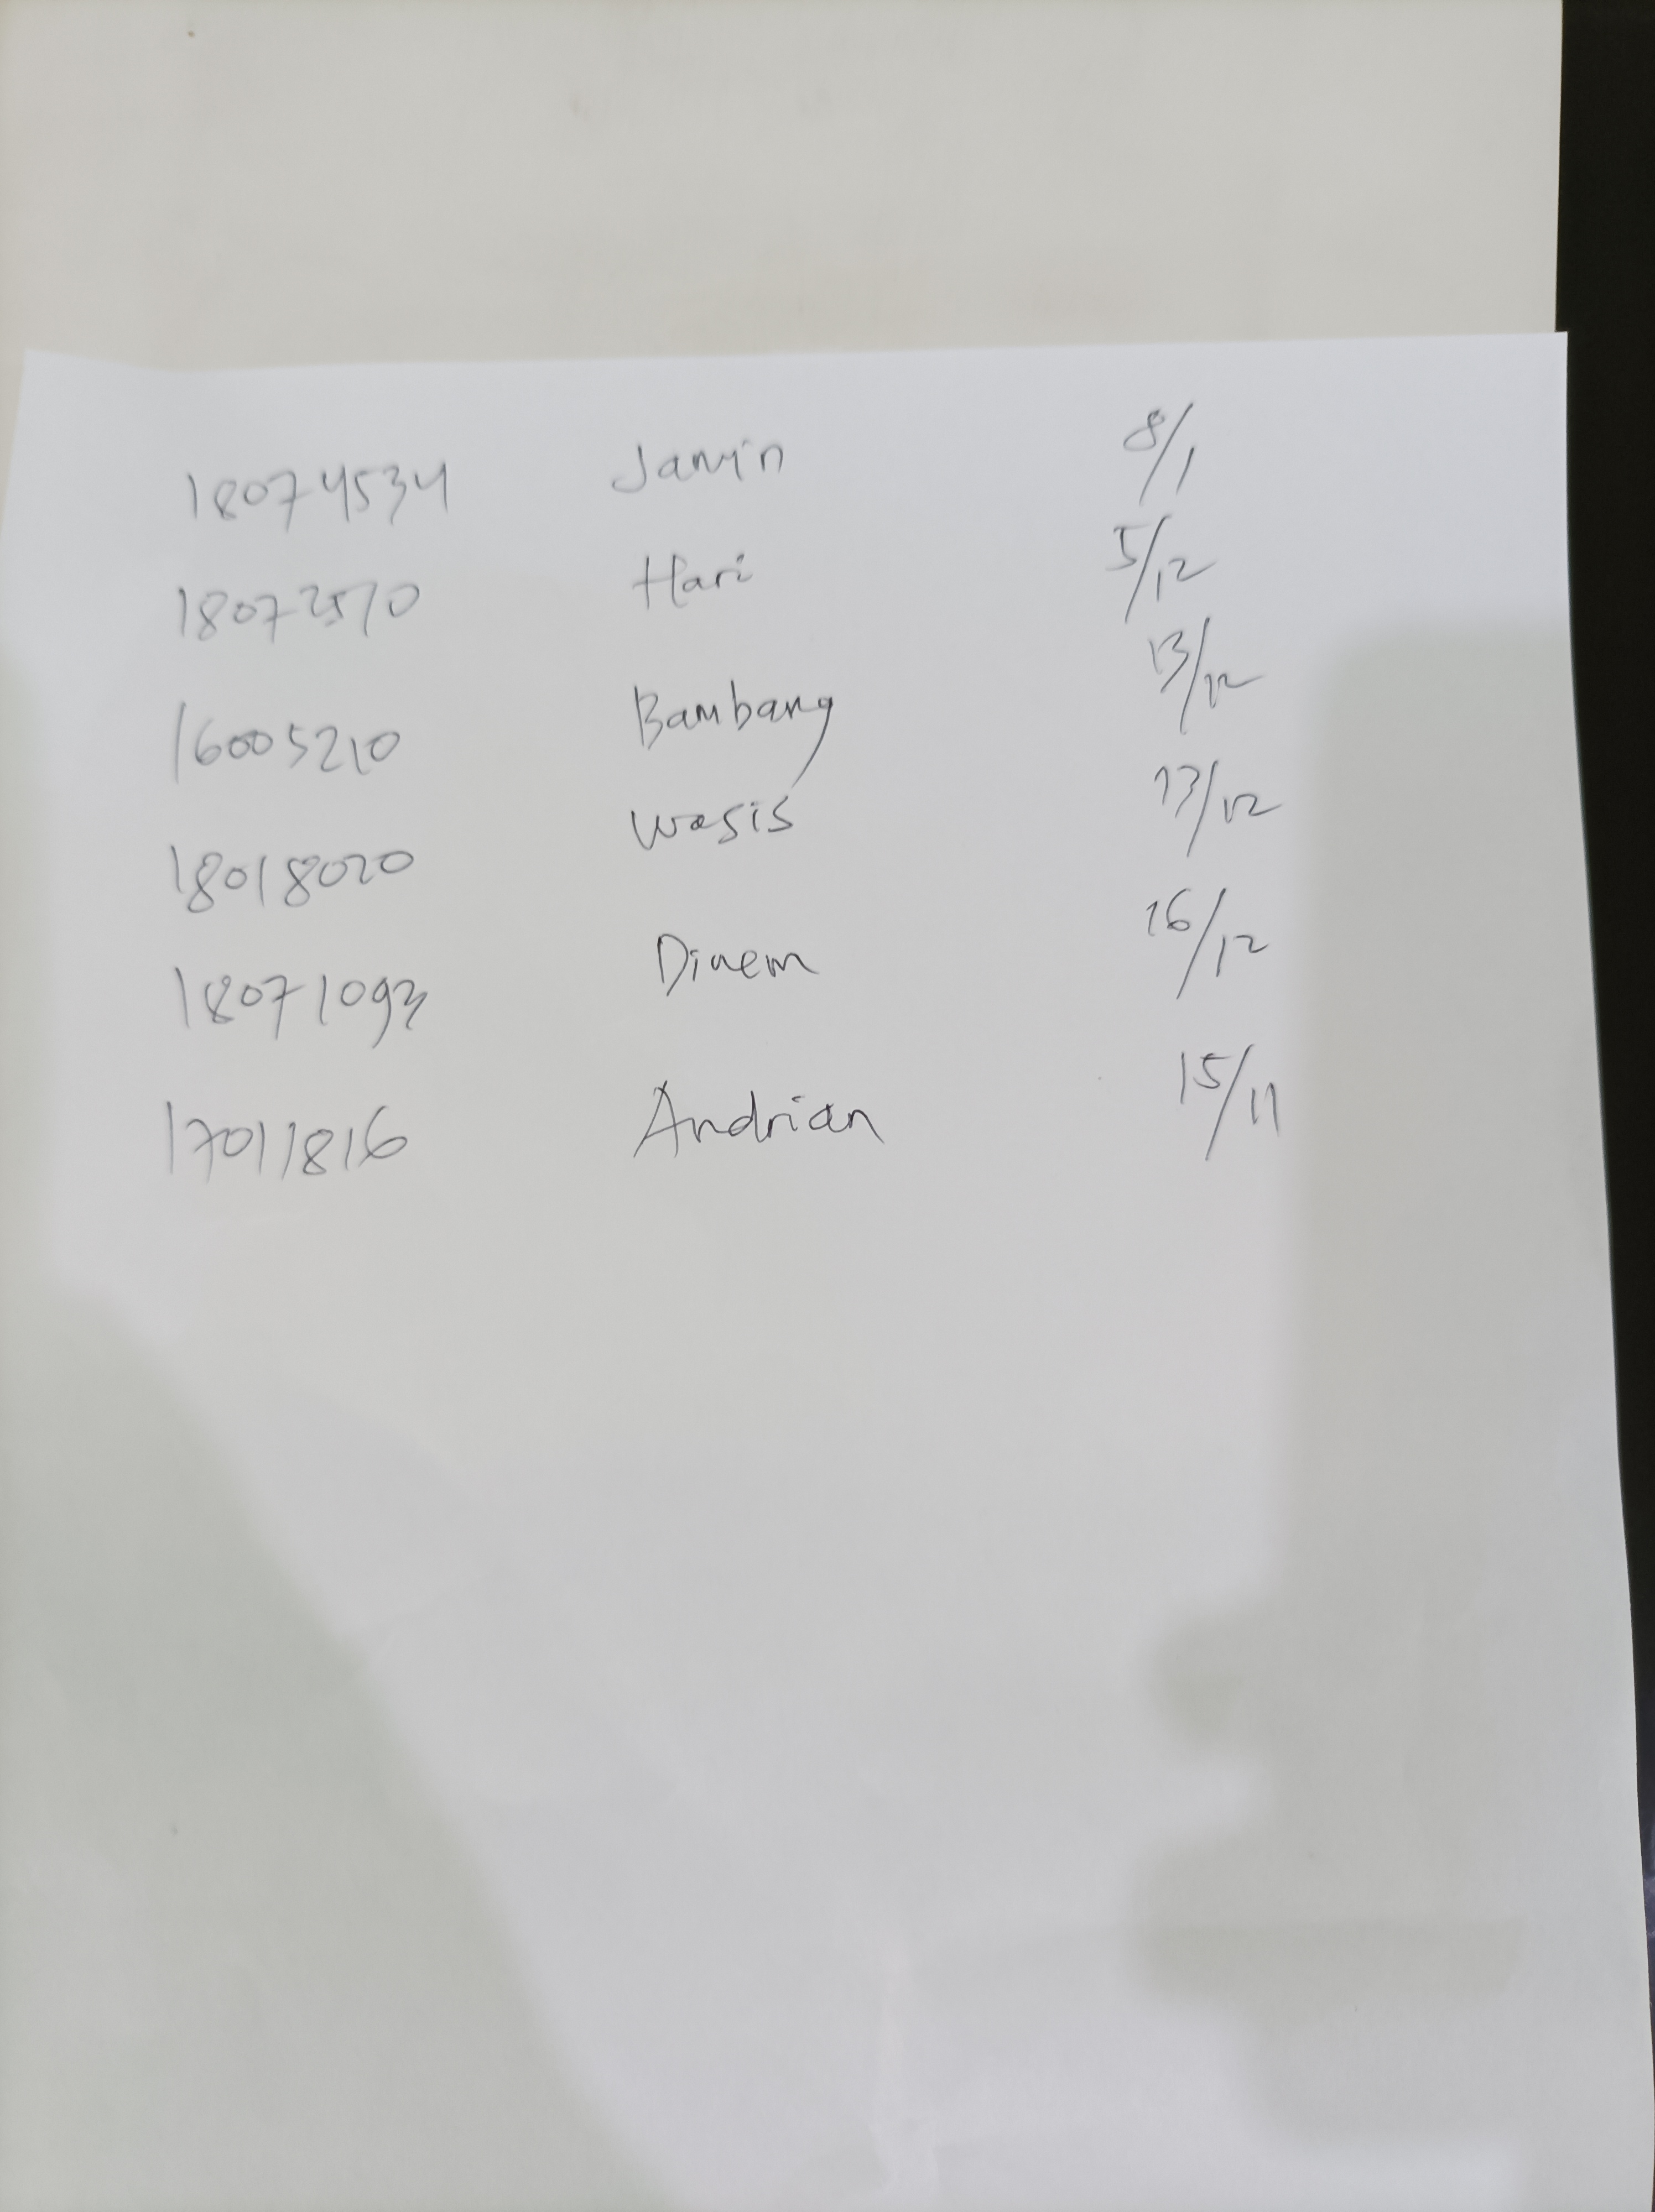 18074534 Jamin 8/1
18072570 Hari 5/12
16005210 Bambang 13/12
18018020 Wasis 13/12
18071093 Dinem 16/12
17011816 Andrian 15/11